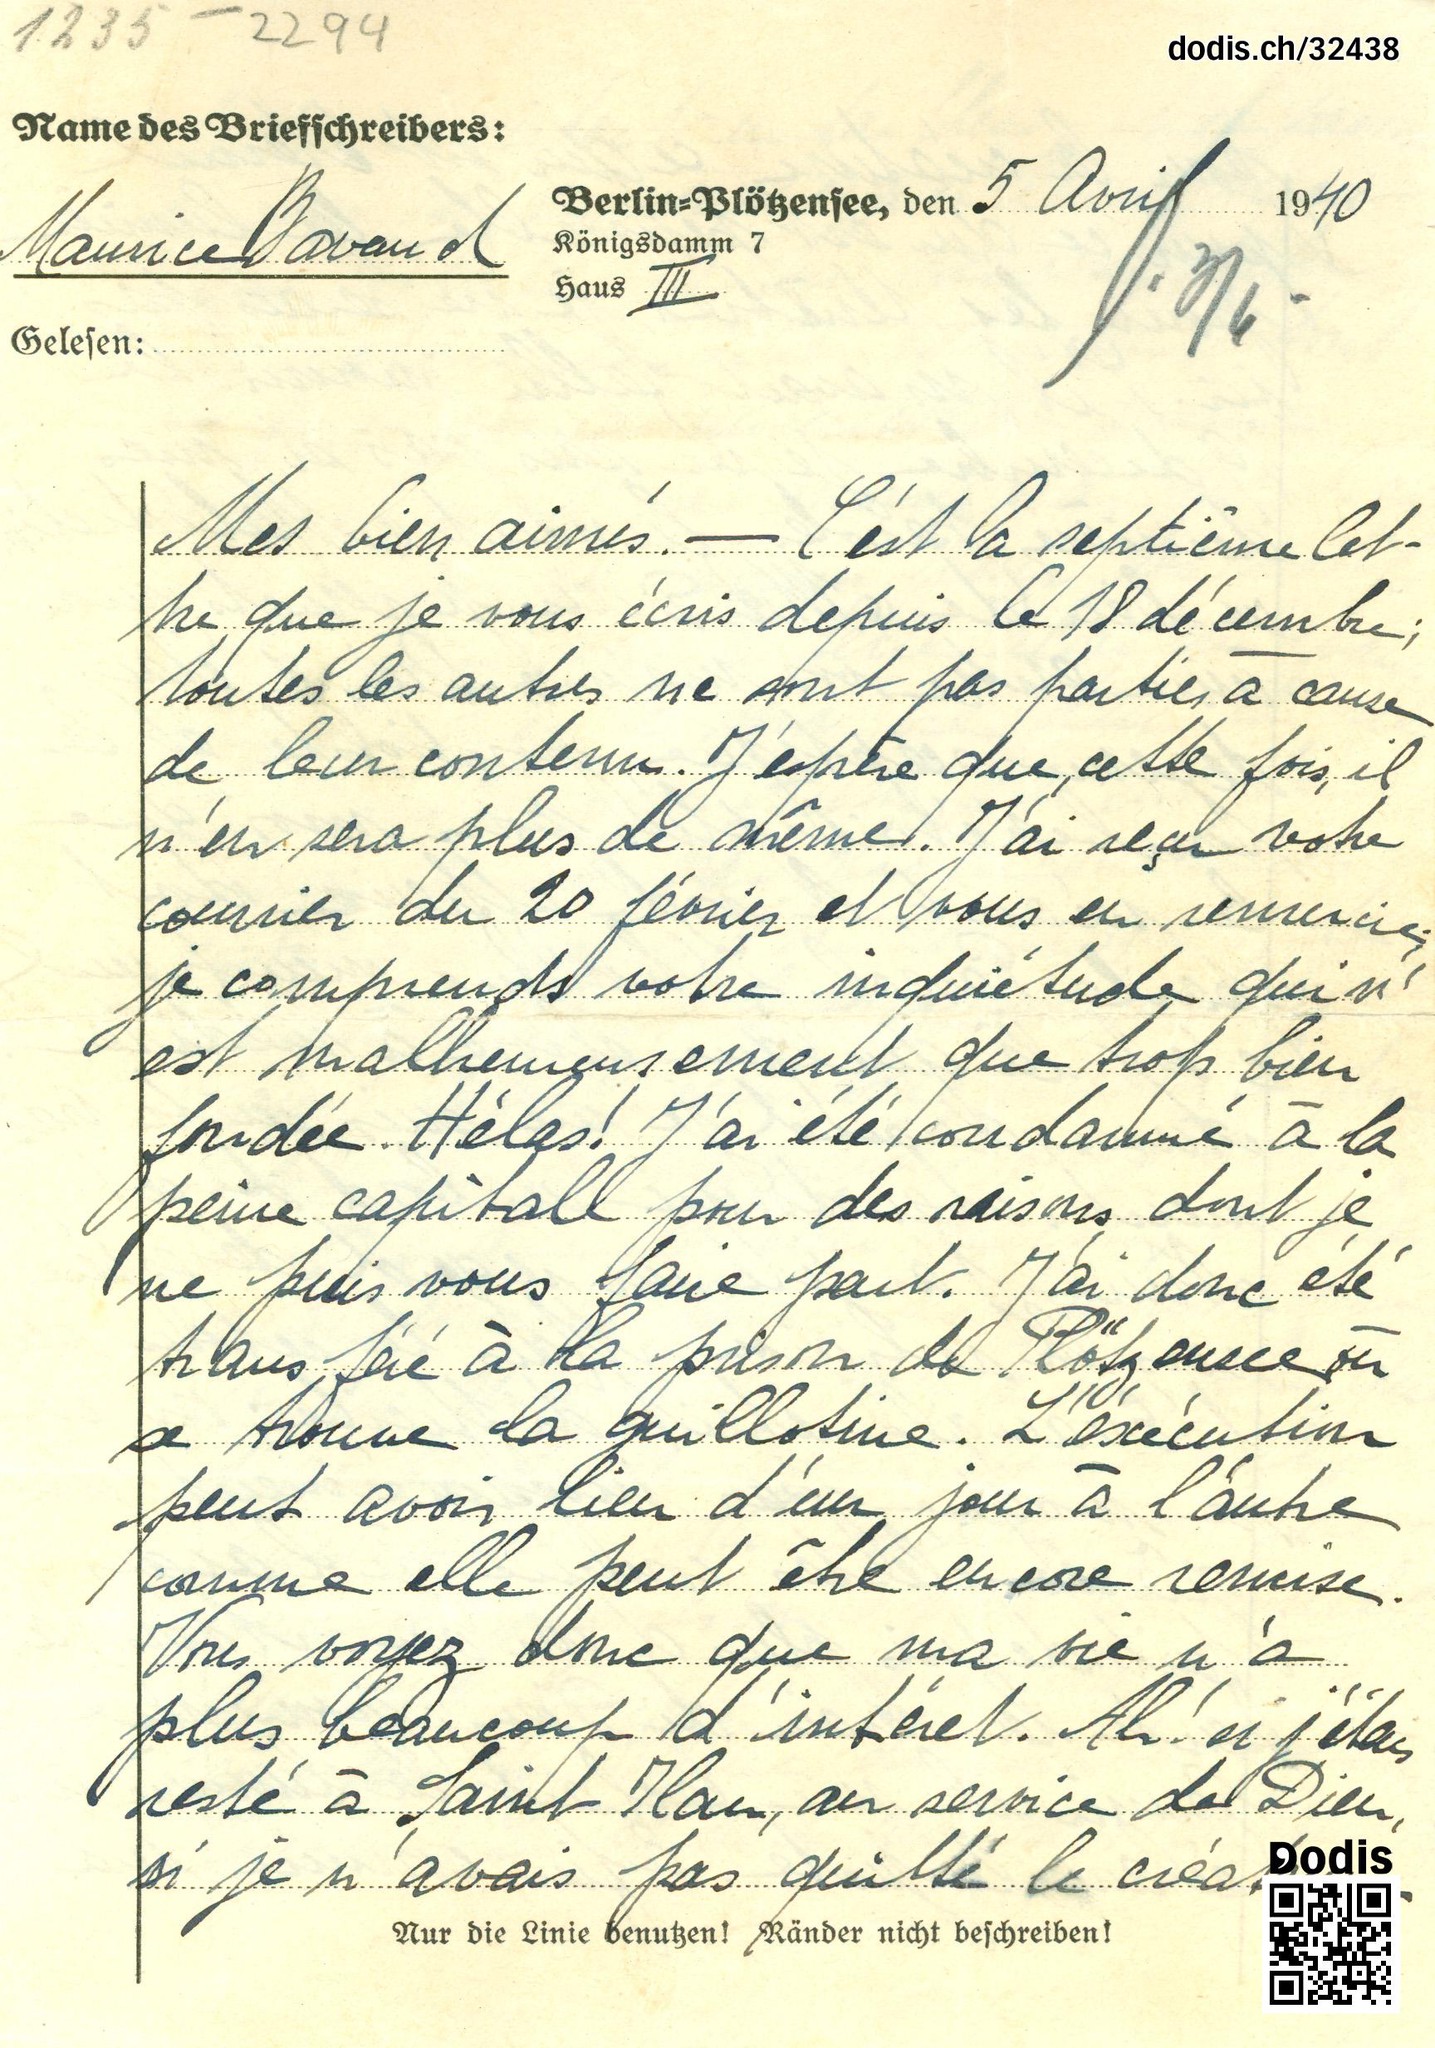 1235-2294
dodis.ch/32438
Name des Briefschreibers:
Maurice Bavaud
Berlin-Plötzensee, den 5 Avril 1940
Königsdamm 7
Haus III
Gelesen:
Mes bien aimés. — C'est la septième let-
tre que je vous écris depuis le 18 décembre;
toutes les autres ne sont pas parties à cause
de leur contenu. J'espère que, cette fois, il
n'en sera plus de même. J'ai reçu votre
courrier du 20 février et vous en remercie;
je comprends votre inquiétude qui n'
est malheureusement que trop bien
fondée. Hélas! J'ai été condamné à la
peine capitale pour des raisons dont je
ne puis vous faire part. J'ai donc été
transféré à la prison de Plötzensee où
se trouve la guillotine. L'éxécution
peut avoir lieu d'un jour à l'autre
comme elle peut être encore remise.
Vous voyez donc que ma vie n'a
plus beaucoup d'intéret. Ah! si j'étais
resté à Saint Ilan, au service de Dieu,
si je n'avais pas quitté le
Nur die Linie benutzen! Ränder nicht beschreiben!
Dodis